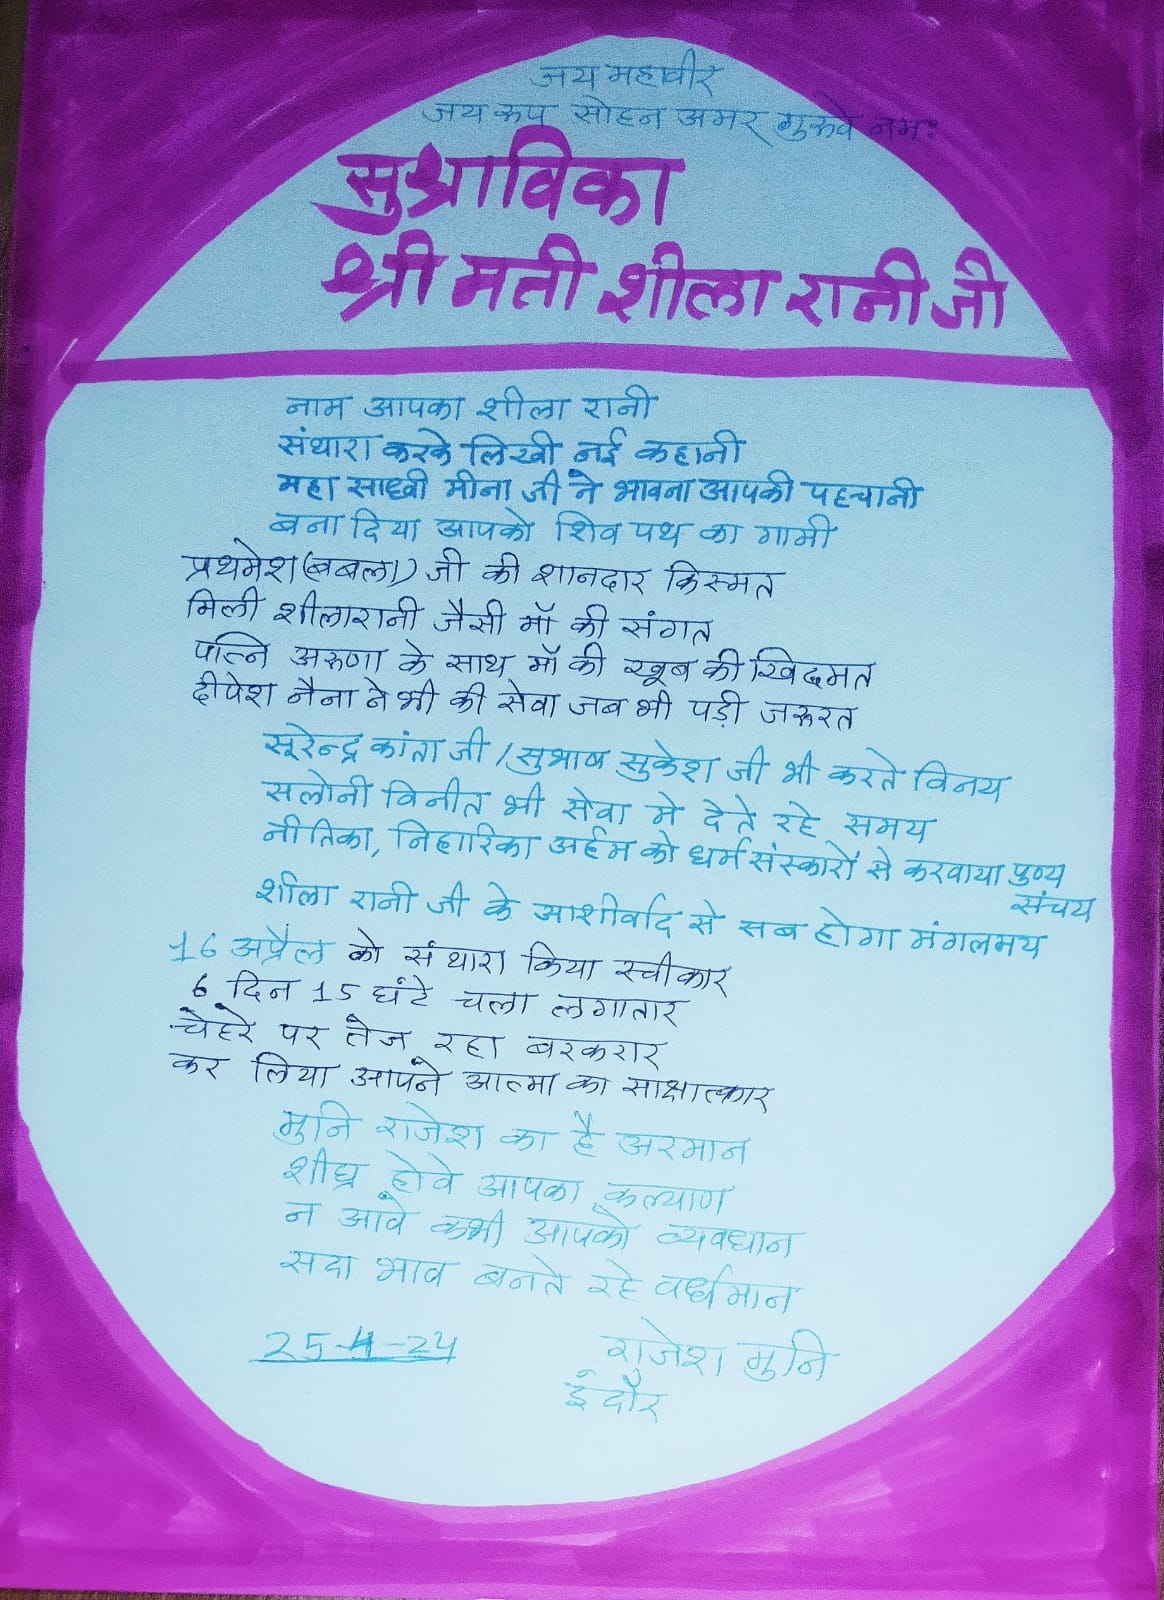 जय महावीर
जय रूप सोहन अमर गुरुवे नमः
सुश्राविका
श्री मती शीला रानी जी
नाम आपका शीला रानी
संथारा करके लिखी नई कहानी
महा साध्वी मीना जी ने भावना आपकी पहचानी
बना दिया आपको शिव पथ का गामी
प्रथमेश (बबला) जी की शानदार किस्मत
मिली शीलारानी जैसी मॉ की संगत
पत्नि अरुणा के साथ मॉ की खूब की खिदमत
दीपेश नैना ने भी की सेवा जब भी पड़ी जरूरत
सूरेन्द्र कांता जी / सुभाष सुकेश जी भी करते विनय
सलोनी विनीत भी सेवा मे देते रहे समय
नीतिका, निहारिका अर्हम को धर्म संस्कारों से करवाया पुण्य
संचय
शीला रानी जी के आशीर्वाद से सब होगा मंगलमय
16 अप्रैल को संथारा किया स्वीकार
6 दिन 15 घंटे चला लगातार
चेहरे पर तेज रहा बरकरार
कर लिया आपने आत्मा का साक्षात्कार
मुनि राजेश का है अरमान
शीघ्र होवे आपका कल्याण
न आवे कभी आपको व्यवधान
सदा भाव बनते रहे वर्धमान
25-4-24
राजेश मुनि
इंदौर